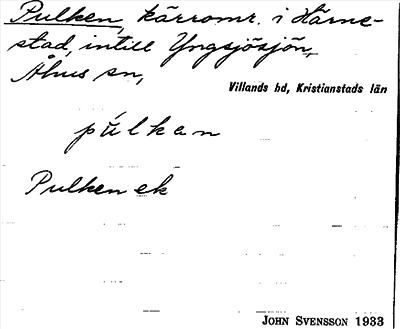 Pulken, kärromr. i Härne-
stad, intill Yngsjösjön,
Åhus sn,
Villands hd, Kristianstads län
pu̍lkan
Pulken ek
JOHN SVENSSON 1933